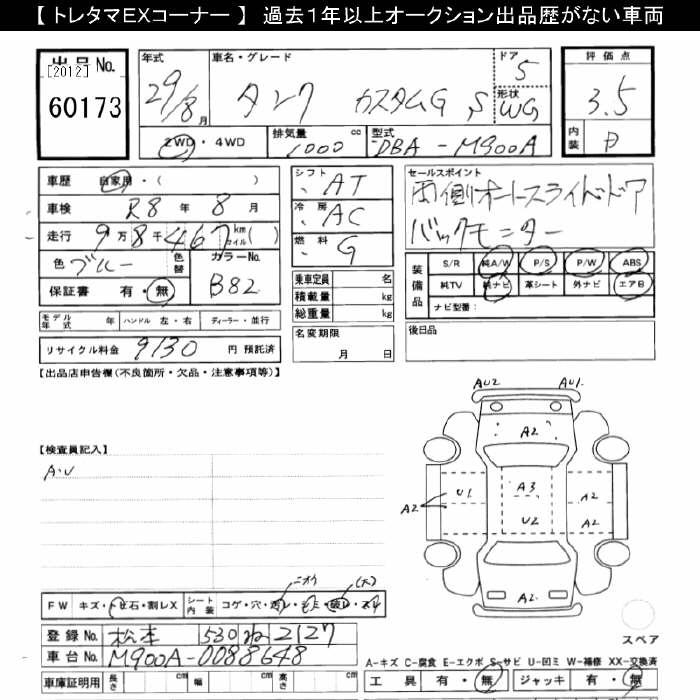 【トレタマEXコーナー】 過去1年以上オークション出品歴がない車両
出品No.
[2012]
60173
年式
29/8月
車名・グレード
タンク カスタムG S
ドア
5
形状
WG
2WD・4WD
排気量
1000 cc
型式
DBA-M900A
評価点
3.5
内装
車歴 自家用・( )
車検 R8年8月
走行 9万8千467 km マイル( )
色 ブルー
色替
カラーNo.
B82
保証書 有・無
シフト AT
冷房 AC
燃料 G
乗車定員 名
積載量 kg
総重量 kg
セールスポイント
両側オートスライドドア
バックモニター
装備品
S/R 純A/W P/S P/W ABS
純TV 純ナビ 革シート 外ナビ エアB
ナビ型番:
モデル年式 年 ハンドル 左・右 ディーラー・並行
名変期限
月 日
後日品
リサイクル料金 9130 円 預託済
【出品店申告欄(不良箇所・欠品・注意事項等)】
AU2 AU1
A2
【検査員記入】
A・U
U1 A3 A2
A2
U2 A2
A2
ニオイ (大)
FW キズ・トビ石・割レX シート内装 コゲ・穴・
登録No. 松本 530 ね 2127
車台No. M900A-0088648
スペア
A-キズ C-腐食 E-エクボ S-サビ U-凹ミ W-補修 XX-交換済
車庫証明用 長さ cm 幅 cm 高さ cm
工具 有・無 ジャッキ 有・無